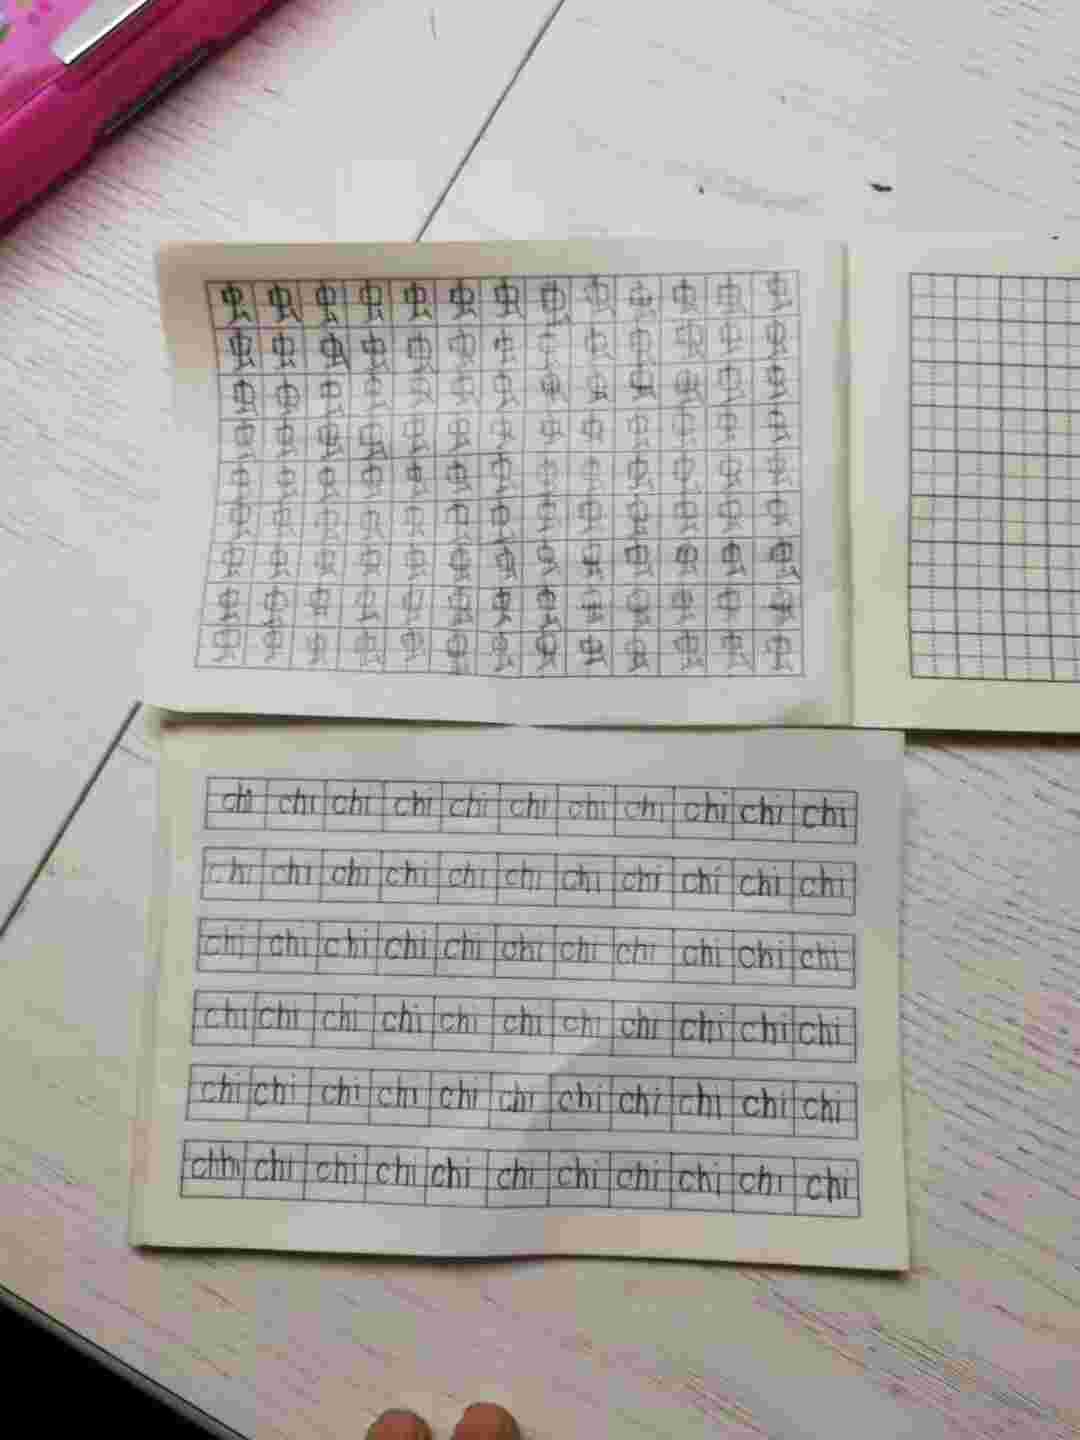 虫 虫 虫 虫 虫 虫 虫 虫 虫 虫 虫 虫 虫
虫 虫 虫 虫 虫 虫 虫 虫 虫 虫 虫 虫 虫
虫 虫 虫 虫 虫 虫 虫 虫 虫 虫 虫 虫 虫
虫 虫 虫 虫 虫 虫 虫 虫 虫 虫 虫 虫 虫
虫 虫 虫 虫 虫 虫 虫 虫 虫 虫 虫 虫 虫
虫 虫 虫 虫 虫 虫 虫 虫 虫 虫 虫 虫 虫
虫 虫 虫 虫 虫 虫 虫 虫 虫 虫 虫 虫 虫
虫 虫 虫 虫 虫 虫 虫 虫 虫 虫 虫 虫 虫
虫 虫 虫 虫 虫 虫 虫 虫 虫 虫 虫 虫 虫
chi chi chi chi chi chi chi chi chi chi chi
chi chi chi chi chi chi chi chi chi chi chi
chi chi chi chi chi chi chi chi chi chi chi
chi chi chi chi chi chi chi chi chi chi chi
chi chi chi chi chi chi chi chi chi chi chi
chhi chi chi chi chi chi chi chi chi chi chi